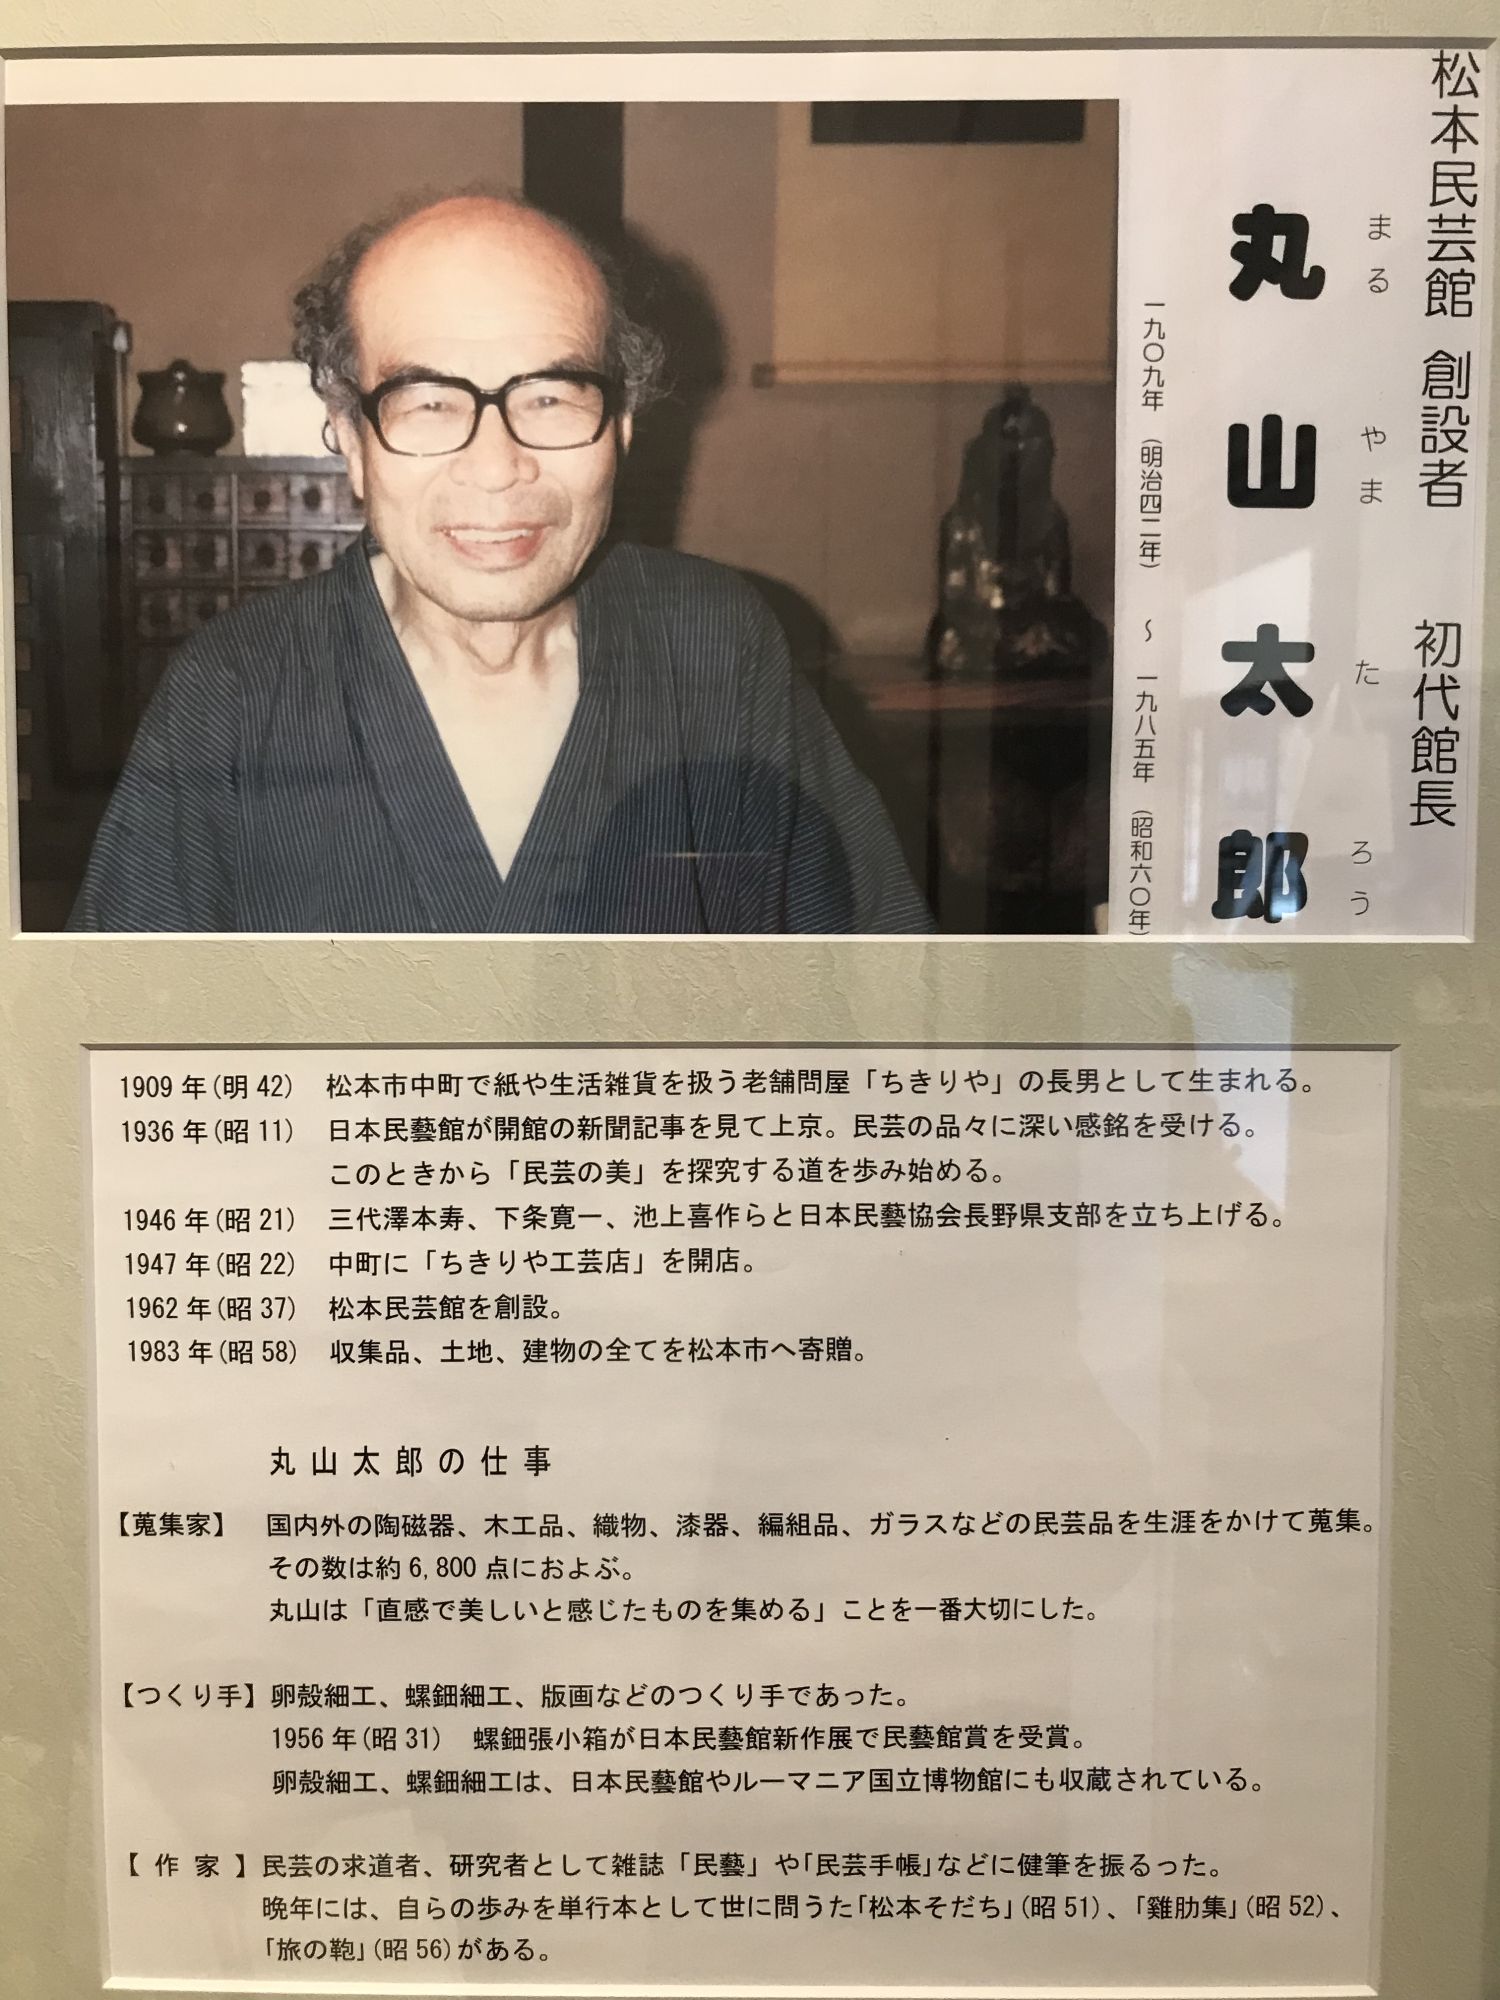 松本民芸館 創設者 初代館長
まる やま た ろう
丸山太郎
一九〇九年（明治四二年） ～ 一九八五年（昭和六〇年）
1909年(明42) 松本市中町で紙や生活雑貨を扱う老舗問屋「ちきりや」の長男として生まれる。
1936年(昭11) 日本民藝館が開館の新聞記事を見て上京。民芸の品々に深い感銘を受ける。
このときから「民芸の美」を探究する道を歩み始める。
1946年(昭21) 三代澤本寿、下条寛一、池上喜作らと日本民藝協会長野県支部を立ち上げる。
1947年(昭22) 中町に「ちきりや工芸店」を開店。
1962年(昭37) 松本民芸館を創設。
1983年(昭58) 収集品、土地、建物の全てを松本市へ寄贈。
丸山太郎の仕事
【蒐集家】 国内外の陶磁器、木工品、織物、漆器、編組品、ガラスなどの民芸品を生涯をかけて蒐集。
その数は約6,800点におよぶ。
丸山は「直感で美しいと感じたものを集める」ことを一番大切にした。
【つくり手】 卵殻細工、螺鈿細工、版画などのつくり手であった。
1956年(昭31) 螺鈿張小箱が日本民藝館新作展で民藝館賞を受賞。
卵殻細工、螺鈿細工は、日本民藝館やルーマニア国立博物館にも収蔵されている。
【作家】 民芸の求道者、研究者として雑誌「民藝」や「民芸手帳」などに健筆を振るった。
晩年には、自らの歩みを単行本として世に問うた「松本そだち」(昭51)、「雞肋集」(昭52)、
「旅の鞄」(昭56)がある。